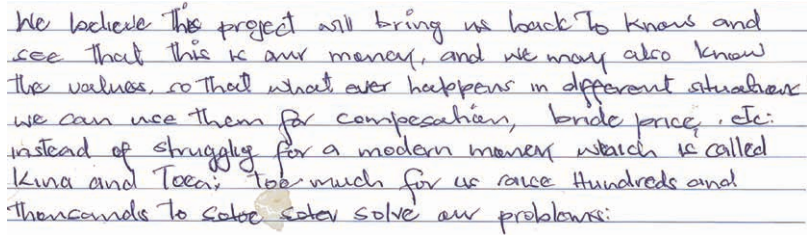 We believe this project will bring us back to know and
see that this is our money, and we may also know
the values, so that what ever happens in different situations
we can use them for compesation, bride price, etc:
instead of strugglig for a modern money which is called
Kina and Toea; too much for us raise Hundreds and
thousands to solve our problems: